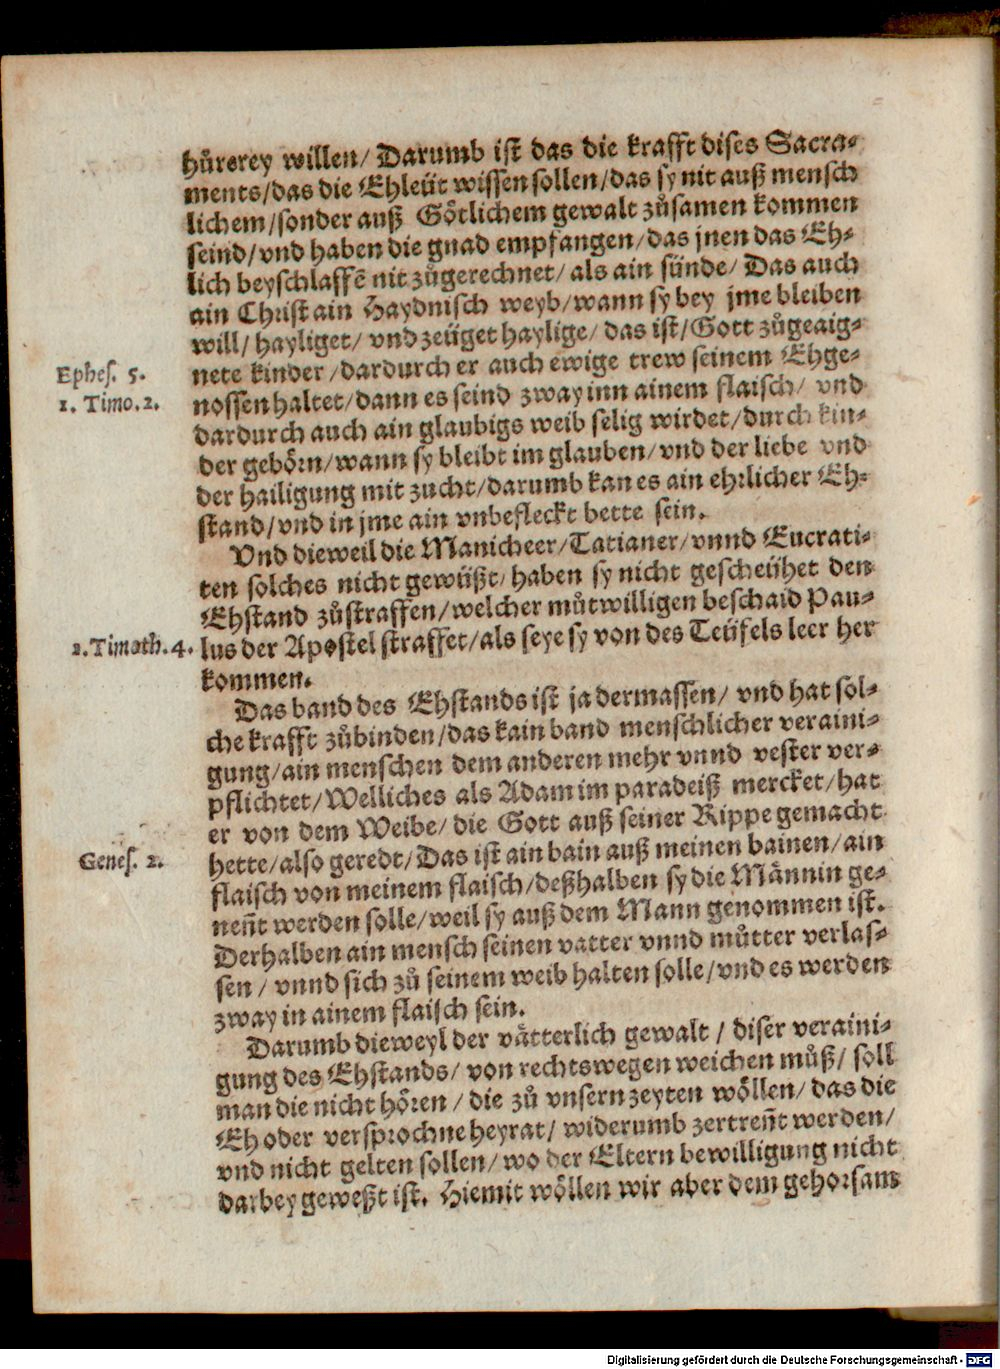 hůrerey willen/ Darumb ist das die krafft dises Sacra-
ments/das die Ehleüt wissen sollen/das sy nit auß mensch
lichem/sonder auß Götlichem gewalt zůsamen kommen
seind/vnd haben die gnad empfangen/das jnen das Eh-
lich beyschlaffẽ nit zůgerechnet/ als ain sünde/ Das auch
ain Christ ain Haydnisch weyb/wann sy bey jme bleiben
will/ hayliget/ vnd zeüget haylige/ das ist/Gott zůgeaig-
Ephes. 5. nete kinder/dardurch er auch ewige trew seinem Ehge-
1. Timo. 2. nossen haltet/dann es seind zway inn ainem flaisch/ vnd
dardurch auch ain glaubigs weib selig wirdet/durch kin-
der gebörn/wann sy bleibt im glauben/vnd der liebe vnd
der hailigung mit zucht/darumb kan es ain ehrlicher Eh-
stand/vnd in jme ain vnbefleckt bette sein.
Vnd dieweil die Manicheer/Tatianer/vnnd Eucrati-
ten solches nicht gewüßt/haben sy nicht gescheühet den
Ehstand zůstraffen/welcher můtwilligen beschaid Pau-
1. Timoth. 4. lus der Apostel straffet/als seye sy von des Teüfels leer her
kommen.
Das band des Ehstands ist ja dermassen/ vnd hat sol-
che krafft zůbinden/das kain band menschlicher veraini-
gung/ain menschen dem anderen mehr vnnd vester ver-
pflichtet/Welliches als Adam im paradeiß mercket/hat
er von dem Weibe/die Gott auß seiner Rippe gemacht
Genes. 2. hette/also geredt/Das ist ain bain auß meinen bainen/ain
flaisch von meinem flaisch/deßhalben sy die Männin ge-
neñt werden solle/weil sy auß dem Mann genommen ist.
Derhalben ain mensch seinen vatter vnnd můtter verlas-
sen/ vnnd sich zů seinem weib halten solle/vnd es werden
zway in ainem flaisch sein.
Darumb dieweyl der våtterlich gewalt/ diser veraini-
gung des Ehstands/ von rechtswegen weichen můß/ soll
man die nicht hören/ die zů vnsern zeyten wöllen/ das die
Eh oder versprochne heyrat/ widerumb zertreñt werden/
vnd nicht gelten sollen/ wo der Eltern bewilligung nicht
darbey geweßt ist. Hiemit wöllen wir aber dem gehorsam
Digitalisierung gefördert durch die Deutsche Forschungsgemeinschaft - DFG